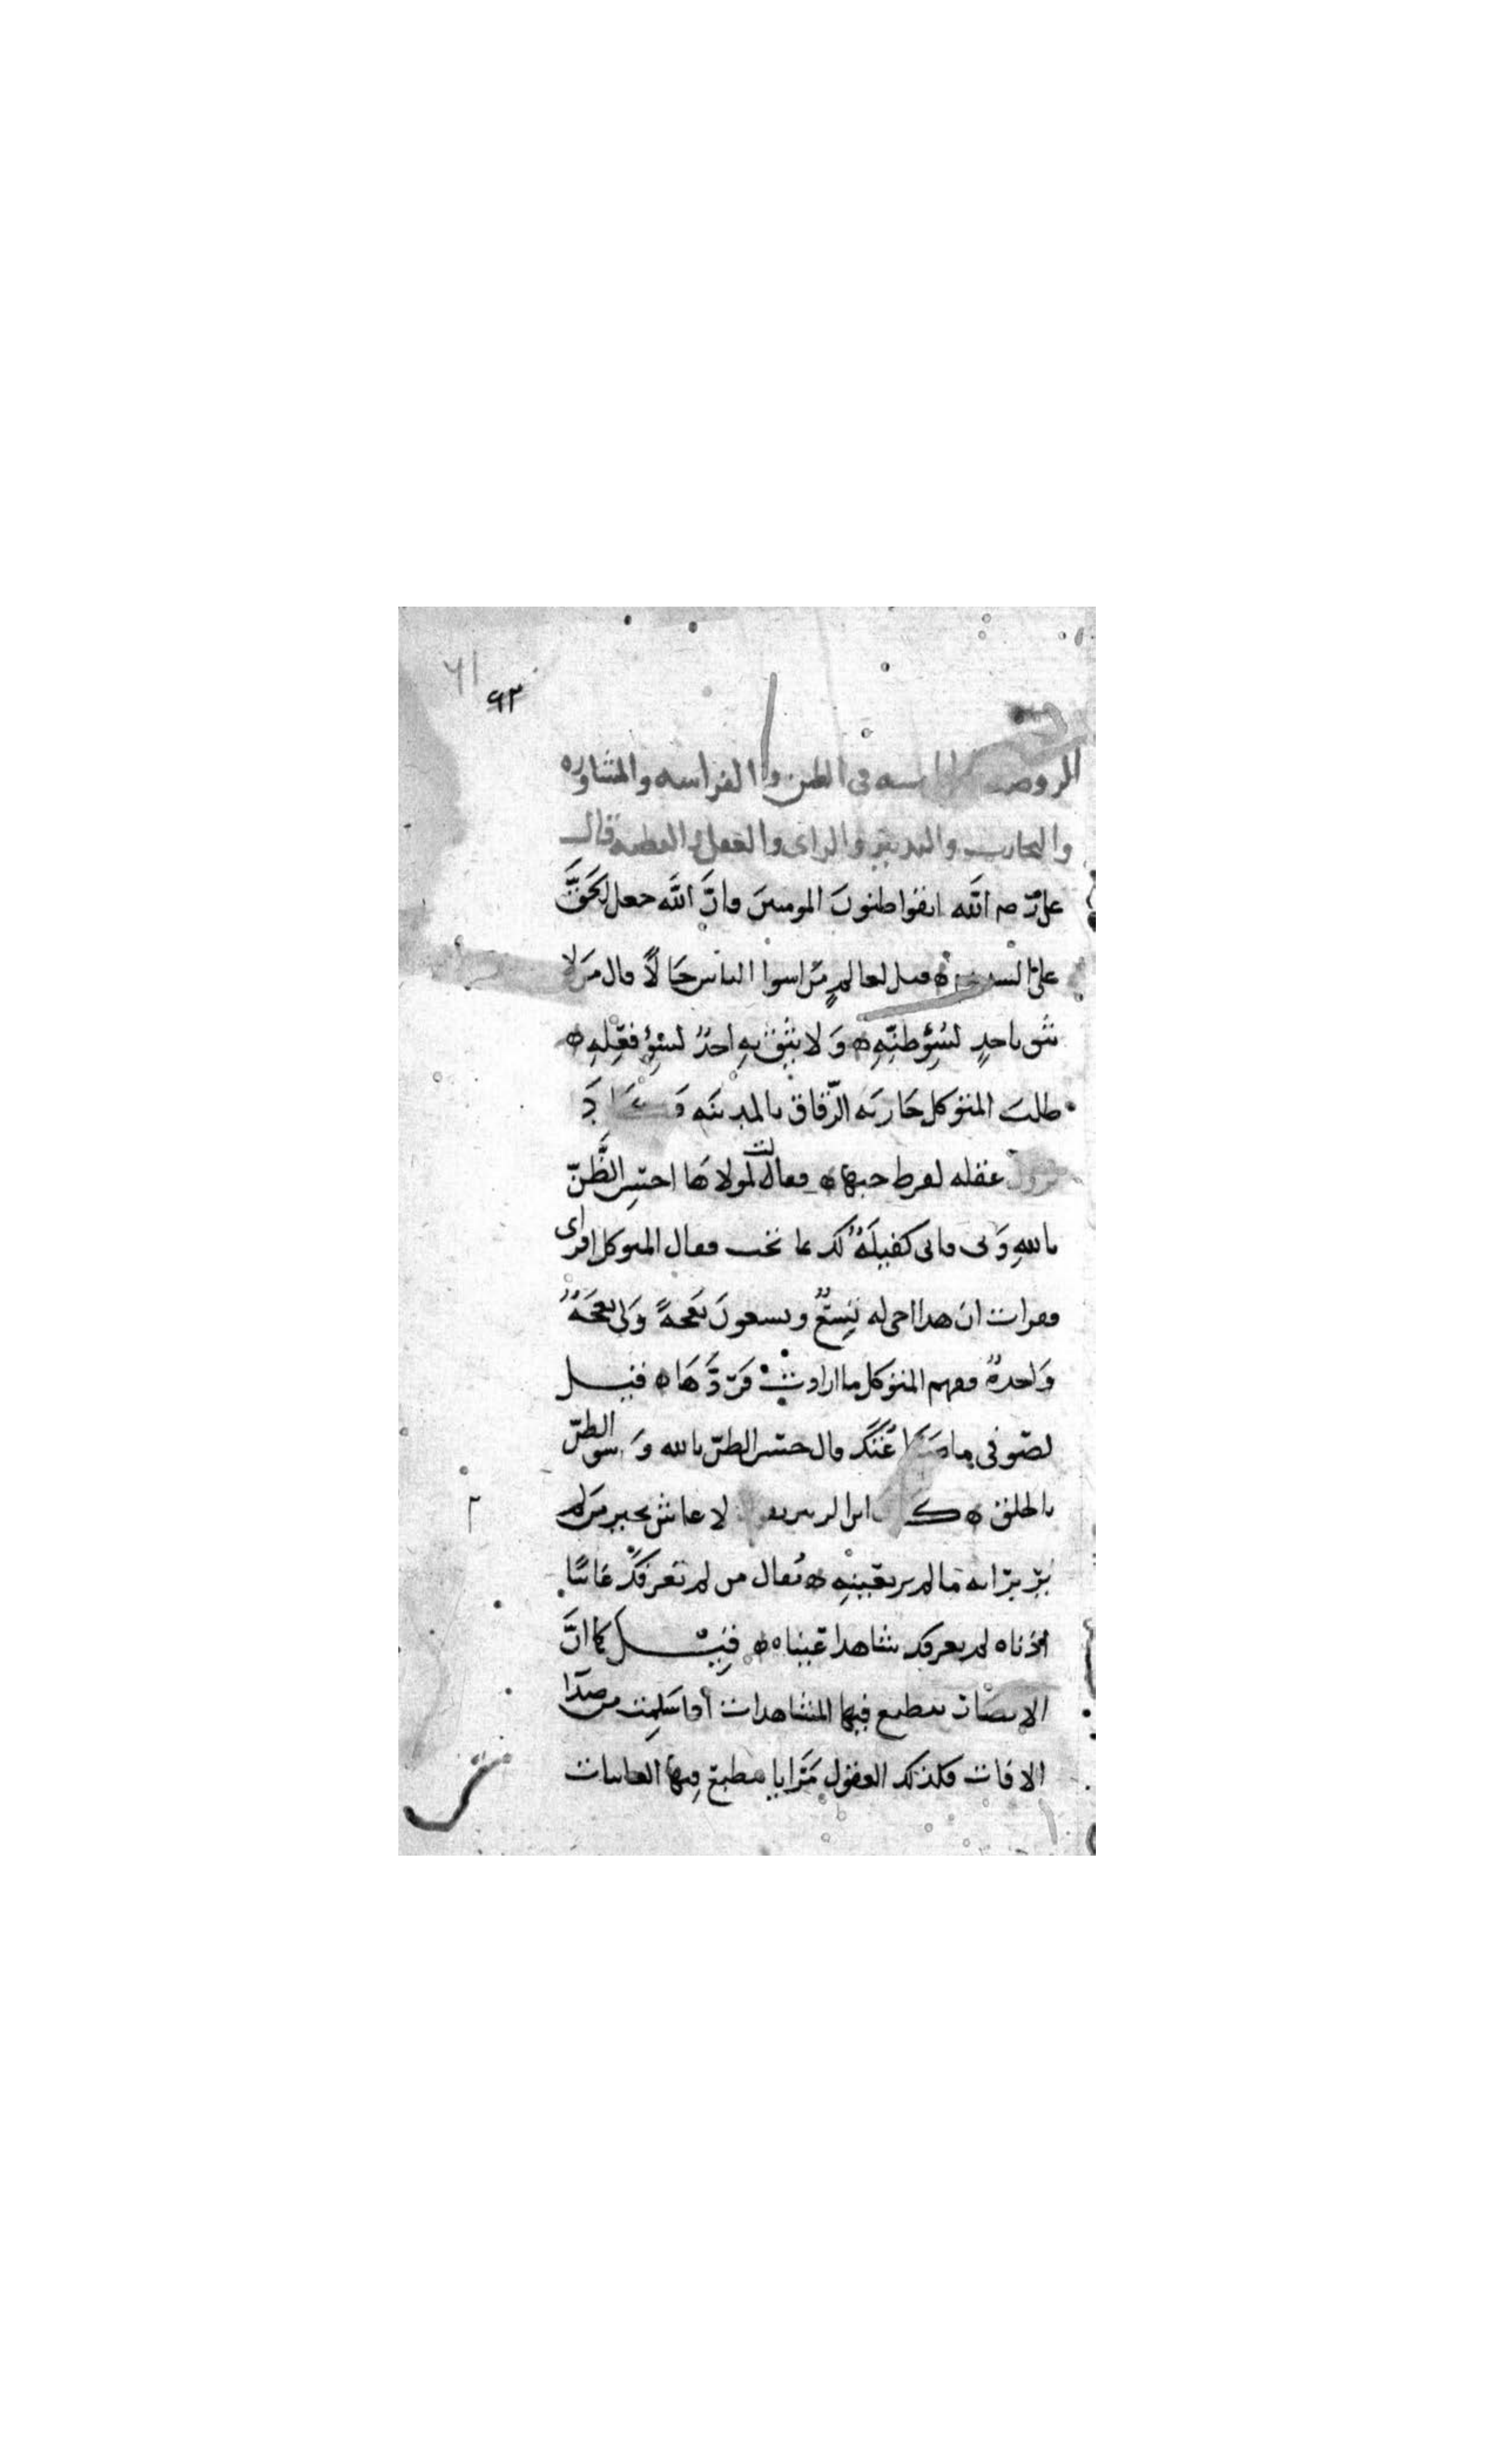 ٩٣
الروضة في الظن والفراسه والمشاوره
والتجارب والتدبير والراى والعقل والفطنه قال
على رم الله اتقوا ظنون المومنين فان الله جعل الحق
على السنتهم ه قيل لعالم من اسوا الناس حالا قال من لا
يثق باحدٍ لسُوءِ ظنّهِ ه وَلا يثق بهِ احدٌ لسُوءِ فعلِهِ ه
طلب المتوكل جاريه الزقاق بالمدينه وَ
يزول عقله لفرط حبها ه فقالت لمولاها احسِن الظنّ
باللهِ وَبى فانى كفيلَةٌ لك بما تحب فقال المتوكل اقراى
فقرات ان هدا اخى له تِسْعٌ وتسعونَ نعجةً وَلى نعجَةٌ
وَاحدةٌ ففهم المتوكل ما ارادت فَردَّهَا ه قيل
لصوفى ما صنَاعَتُكَ قال حسن الظنّ بالله وَسو الظنّ
بالخلق ه كان ابن الزبير يقول لا عاش بخير من لم
يرَ برايه ما لم ير بعينِهِ ه يُقال من لم يعرفكَ غائبًا
اذناه لم يعرفك شاهدا عيناه ه قيل كما انَّ
الابصار تنطبع فيها المشاهدات اذا سَلِمت من صدَا
الافات فكذلك العقول مَرَايا تنطبع فيها الغائبات